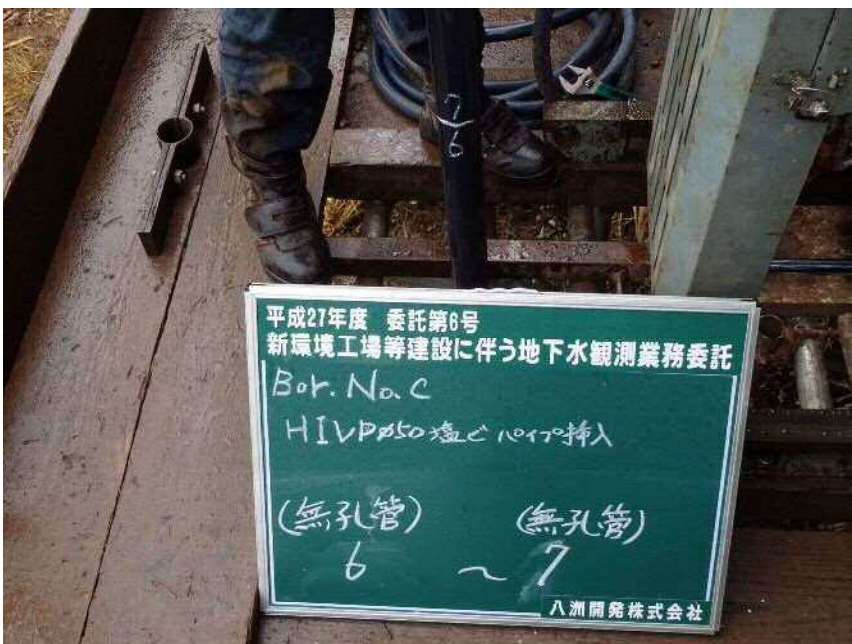 7
6
平成27年度 委託第6号
新環境工場等建設に伴う地下水観測業務委託
Bor. No. C
HIVPφ50塩ビパイプ挿入
(無孔管) (無孔管)
6 ~ 7
八洲開発株式会社